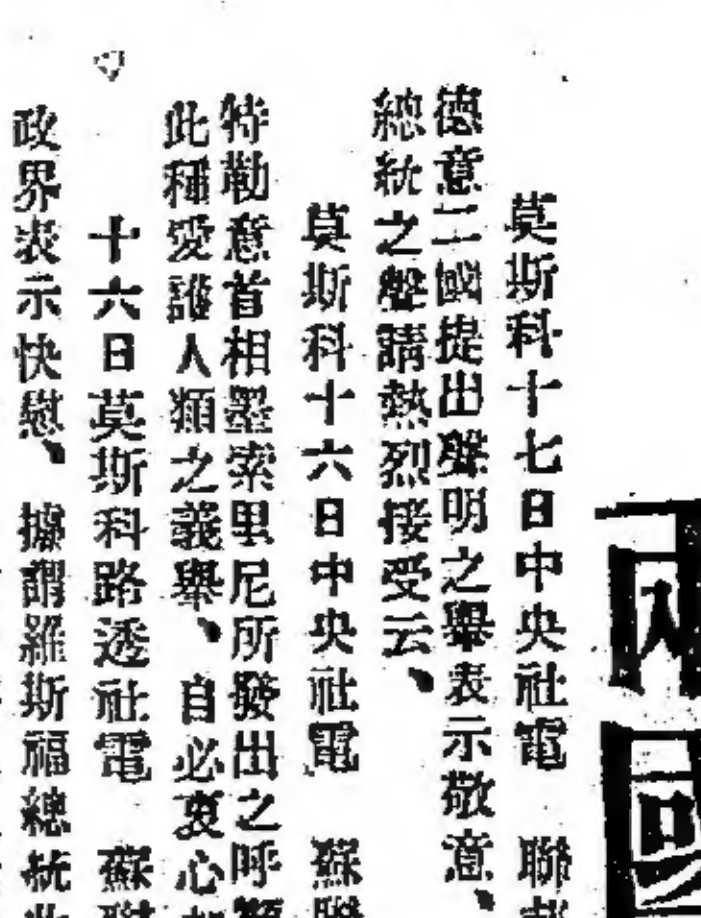 兩國
莫斯科十七日中央社電　聯
德意二國提出聲明之舉表示敬意、
總統之聲請熱烈接受云、
莫斯科十六日中央社電　蘇聯
特勒意首相墨索里尼所發出之呼籲
此種愛護人類之義舉、自必衷心
十六日莫斯科路透社電　蘇聯
政界表示快慰、據謂羅斯福總統此